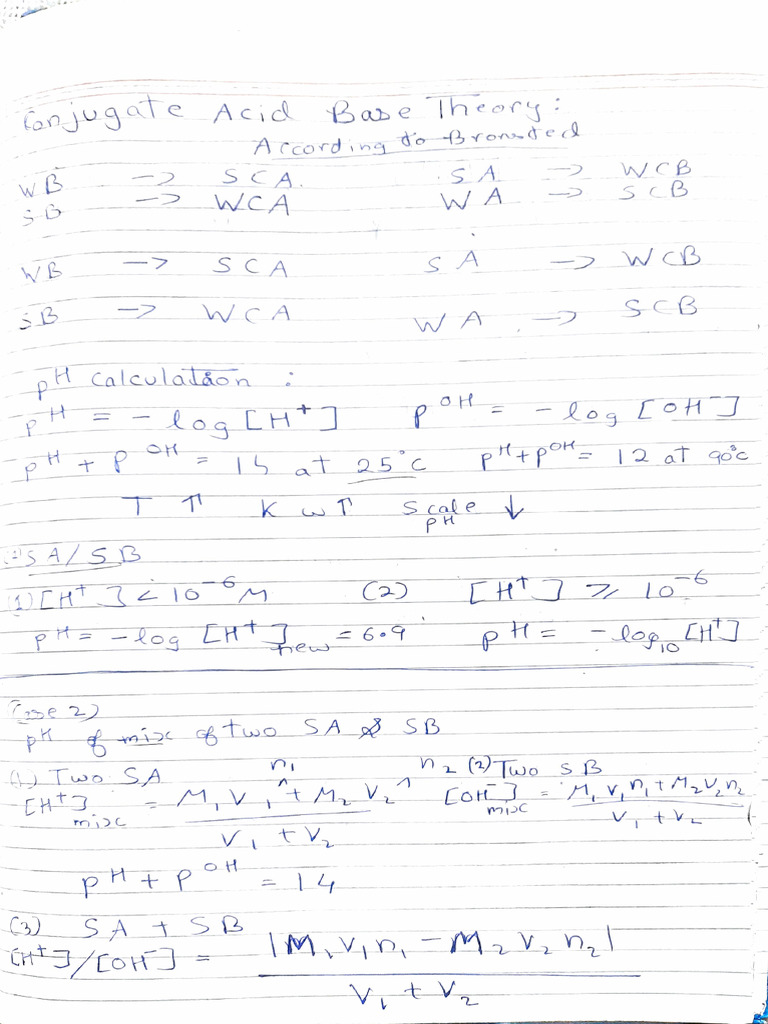 Conjugate Acid Base Theory:
According to Bronsted
WB → SCA. SA → WCB
SB → WCA WA → SCB
WB → SCA SA → WCB
SB → WCA WA → SCB
pH Calculation :
pH = - log [H⁺] pOH = - log [OH⁻]
pH + pOH = 14 at 25°C pH + pOH = 12 at 90°C
T ↑ Kw ↑ Scale pH ↓
SA/SB
(1) [H⁺] < 10⁻⁶ M (2) [H⁺] ≥ 10⁻⁶
pH = -log [H⁺]new = 6.9 pH = - log₁₀ [H⁺]
Case 2)
pH of mix of two SA & SB
(1) Two SA n₁ n₂ (2) Two SB
[H⁺]mix = M₁V₁^ + M₂V₂^ / V₁ + V₂ [OH⁻]mix = M₁V₁n₁ + M₂V₂n₂ / V₁ + V₂
pH + pOH = 14
(3) SA + SB
[H⁺]/[OH⁻] = |M₁V₁n₁ - M₂V₂n₂| / V₁ + V₂